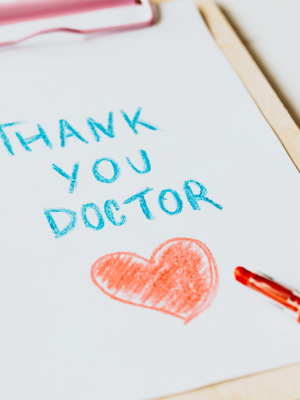 THANK
YOU
DOCTOR